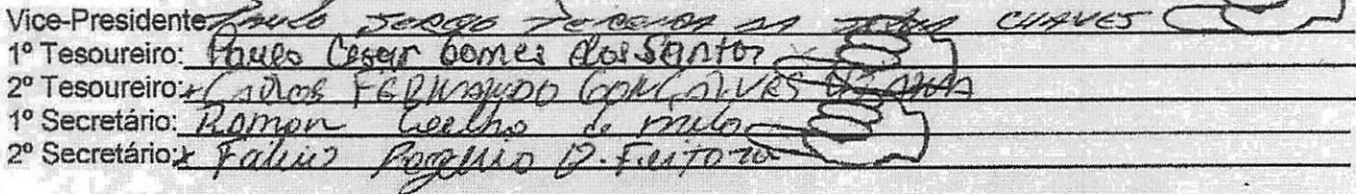 Vice-Presidente: Paulo Sergio Pereira da Silva CHAVES
1º Tesoureiro: Paulo Cesar Gomes dos Santos
2º Tesoureiro: Carlos FERNANDO GONÇALVES
1º Secretário: Ramon Coelho de melo
2º Secretário: Fabio Rogerio D. Feitoza